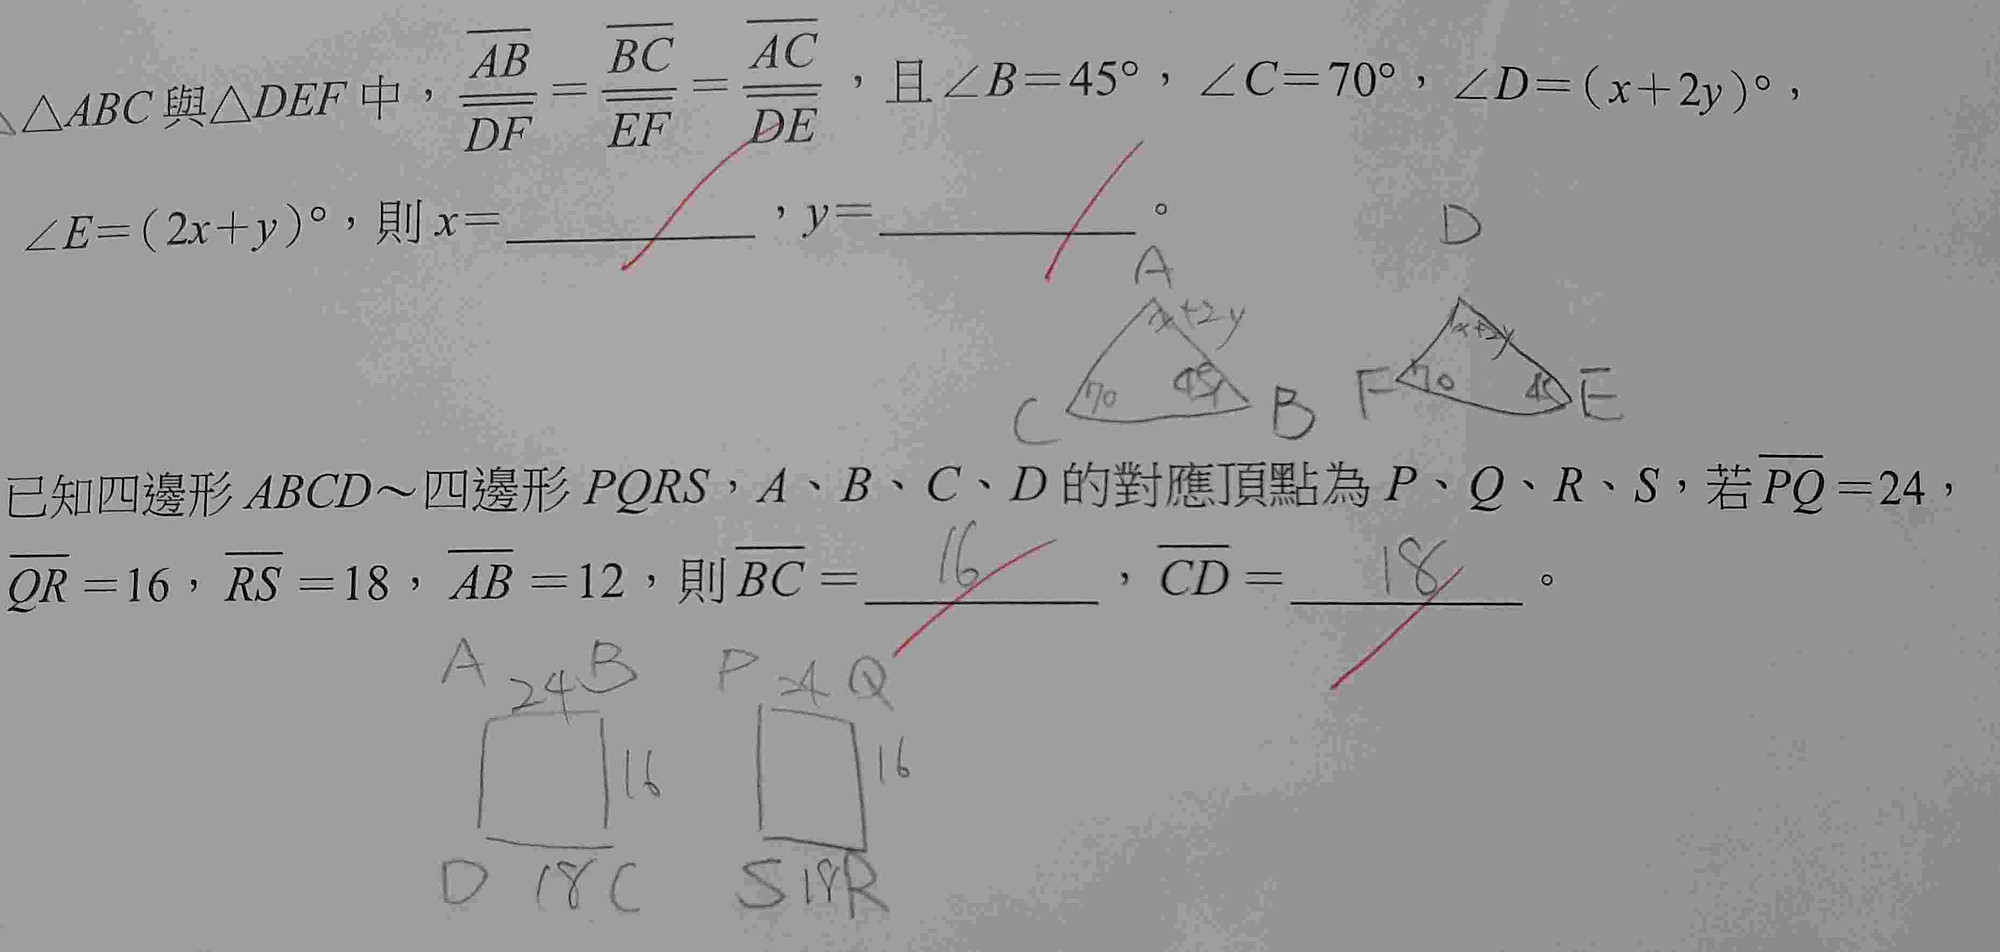 △ABC與△DEF中，AB/DF=BC/EF=AC/DE，且∠B=45°，∠C=70°，∠D=(x+2y)°，
∠E=(2x+y)°，則x=＿＿＿，y=＿＿＿。
D
A
x+2y x+2y
70 45 70 45
C B F E
已知四邊形ABCD～四邊形PQRS，A、B、C、D的對應頂點為P、Q、R、S，若PQ=24，
QR=16，RS=18，AB=12，則BC=16，CD=18。
A 24 B P 24 Q
16 16
D 18 C S 18 R